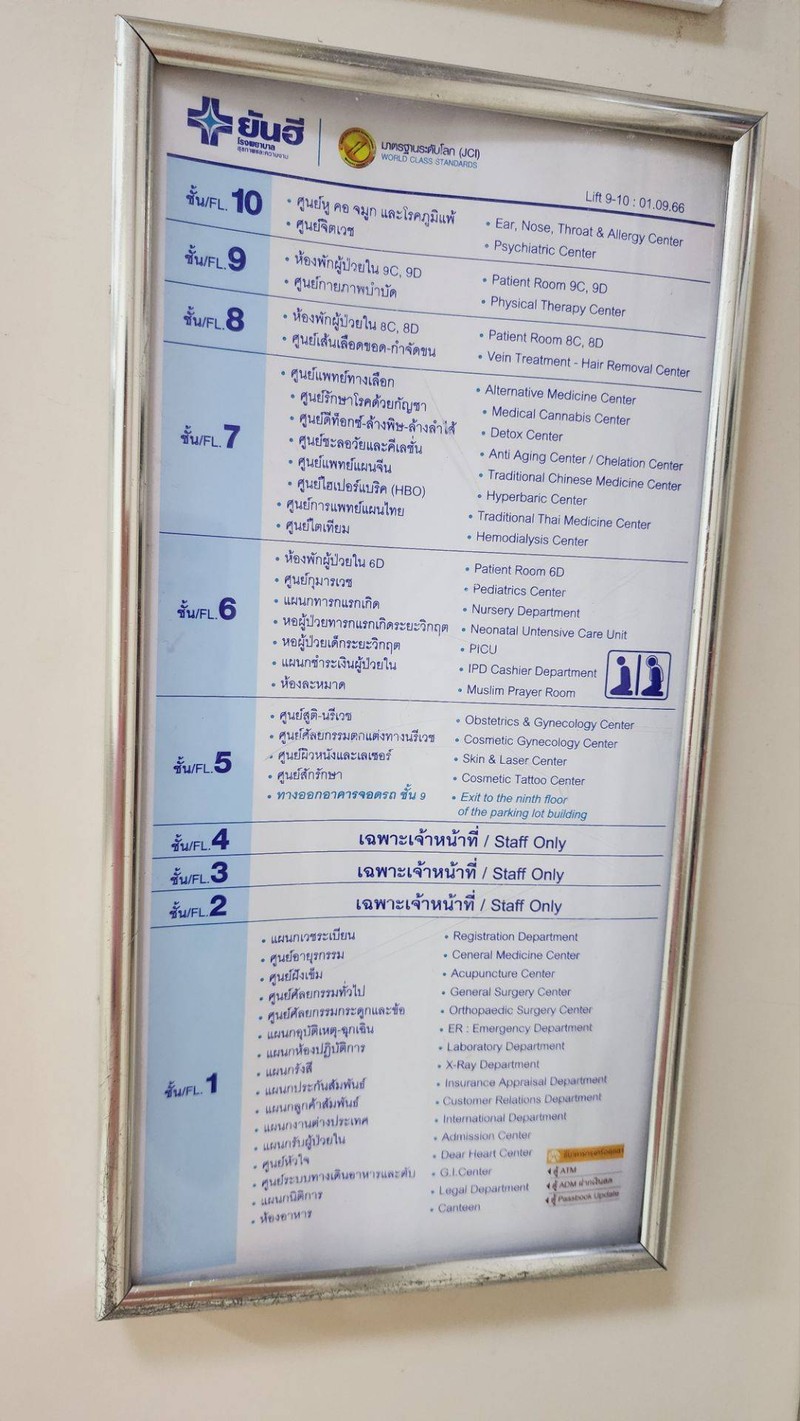 ยันฮี
โรงพยาบาล
สุขภาพและความงาม
มาตรฐานระดับโลก (JCI)
WORLD CLASS STANDARDS
Lift 9-10 : 01.09.66
ชั้น/FL. 10
• ศูนย์หู คอ จมูก และโรคภูมิแพ้
• ศูนย์จิตเวช
• Ear, Nose, Throat & Allergy Center
• Psychiatric Center
ชั้น/FL. 9
• ห้องพักผู้ป่วยใน 9C, 9D
• ศูนย์กายภาพบำบัด
• Patient Room 9C, 9D
• Physical Therapy Center
ชั้น/FL. 8
• ห้องพักผู้ป่วยใน 8C, 8D
• ศูนย์เส้นเลือดขอด-กำจัดขน
• Patient Room 8C, 8D
• Vein Treatment - Hair Removal Center
ชั้น/FL. 7
• ศูนย์แพทย์ทางเลือก
• ศูนย์รักษาโรคด้วยกัญชา
• ศูนย์ดีท็อกซ์-ล้างพิษ-ล้างลำไส้
• ศูนย์ชะลอวัยและคีเลชั่น
• ศูนย์แพทย์แผนจีน
• ศูนย์ไฮเปอร์แบริค (HBO)
• ศูนย์การแพทย์แผนไทย
• ศูนย์ไตเทียม
• Alternative Medicine Center
• Medical Cannabis Center
• Detox Center
• Anti Aging Center / Chelation Center
• Traditional Chinese Medicine Center
• Hyperbaric Center
• Traditional Thai Medicine Center
• Hemodialysis Center
ชั้น/FL. 6
• ห้องพักผู้ป่วยใน 6D
• ศูนย์กุมารเวช
• แผนกทารกแรกเกิด
• หอผู้ป่วยทารกแรกเกิดระยะวิกฤต
• หอผู้ป่วยเด็กระยะวิกฤต
• แผนกชำระเงินผู้ป่วยใน
• ห้องละหมาด
• Patient Room 6D
• Pediatrics Center
• Nursery Department
• Neonatal Untensive Care Unit
• PICU
• IPD Cashier Department
• Muslim Prayer Room
ชั้น/FL. 5
• ศูนย์สูติ-นรีเวช
• ศูนย์ศัลยกรรมตกแต่งทางนรีเวช
• ศูนย์ผิวหนังและเลเซอร์
• ศูนย์สักรักษา
• ทางออกอาคารจอดรถ ชั้น 9
• Obstetrics & Gynecology Center
• Cosmetic Gynecology Center
• Skin & Laser Center
• Cosmetic Tattoo Center
• Exit to the ninth floor
of the parking lot building
ชั้น/FL. 4 เฉพาะเจ้าหน้าที่ / Staff Only
ชั้น/FL. 3 เฉพาะเจ้าหน้าที่ / Staff Only
ชั้น/FL. 2 เฉพาะเจ้าหน้าที่ / Staff Only
ชั้น/FL. 1
• แผนกเวชระเบียน
• ศูนย์อายุรกรรม
• ศูนย์ฝังเข็ม
• ศูนย์ศัลยกรรมทั่วไป
• ศูนย์ศัลยกรรมกระดูกและข้อ
• แผนกอุบัติเหตุ-ฉุกเฉิน
• แผนกห้องปฏิบัติการ
• แผนกรังสี
• แผนกประกันสัมพันธ์
• แผนกลูกค้าสัมพันธ์
• แผนกงานต่างประเทศ
• แผนกรับผู้ป่วยใน
• ศูนย์หัวใจ
• ศูนย์ระบบทางเดินอาหารและตับ
• แผนกนิติการ
• ห้องอาหาร
• Registration Department
• Ceneral Medicine Center
• Acupuncture Center
• General Surgery Center
• Orthopaedic Surgery Center
• ER : Emergency Department
• Laboratory Department
• X-Ray Department
• Insurance Appraisal Department
• Customer Relations Department
• International Department
• Admission Center
• Dear Heart Center
• G.I.Center
• Legal Department
• Canteen
ตู้ ATM
ตู้ ADM ฝากเงินสด
ตู้ Passbook Update